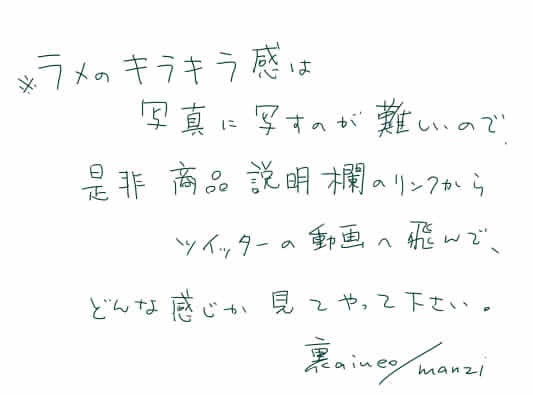 ※ラメのキラキラ感は
写真に写すのが難しいので、
是非 商品説明欄のリンクから
ツイッターの動画へ飛んで、
どんな感じか見てやって下さい。
裏caineo/manzi